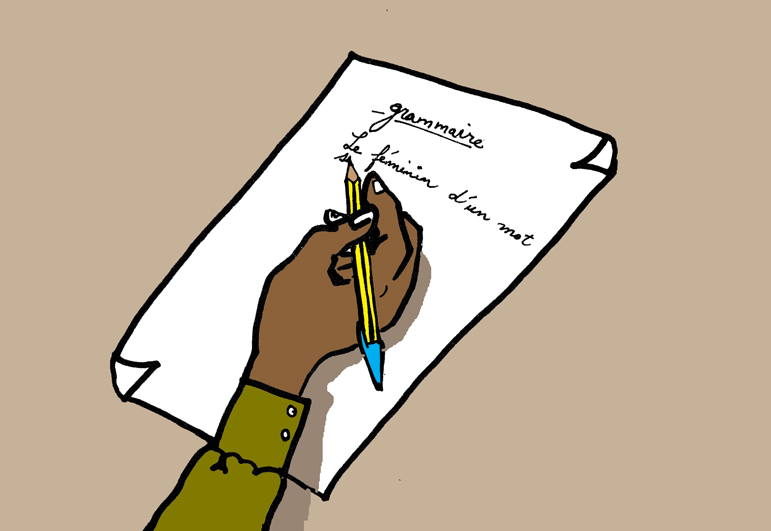 - grammaire
Le féminin d'un mot